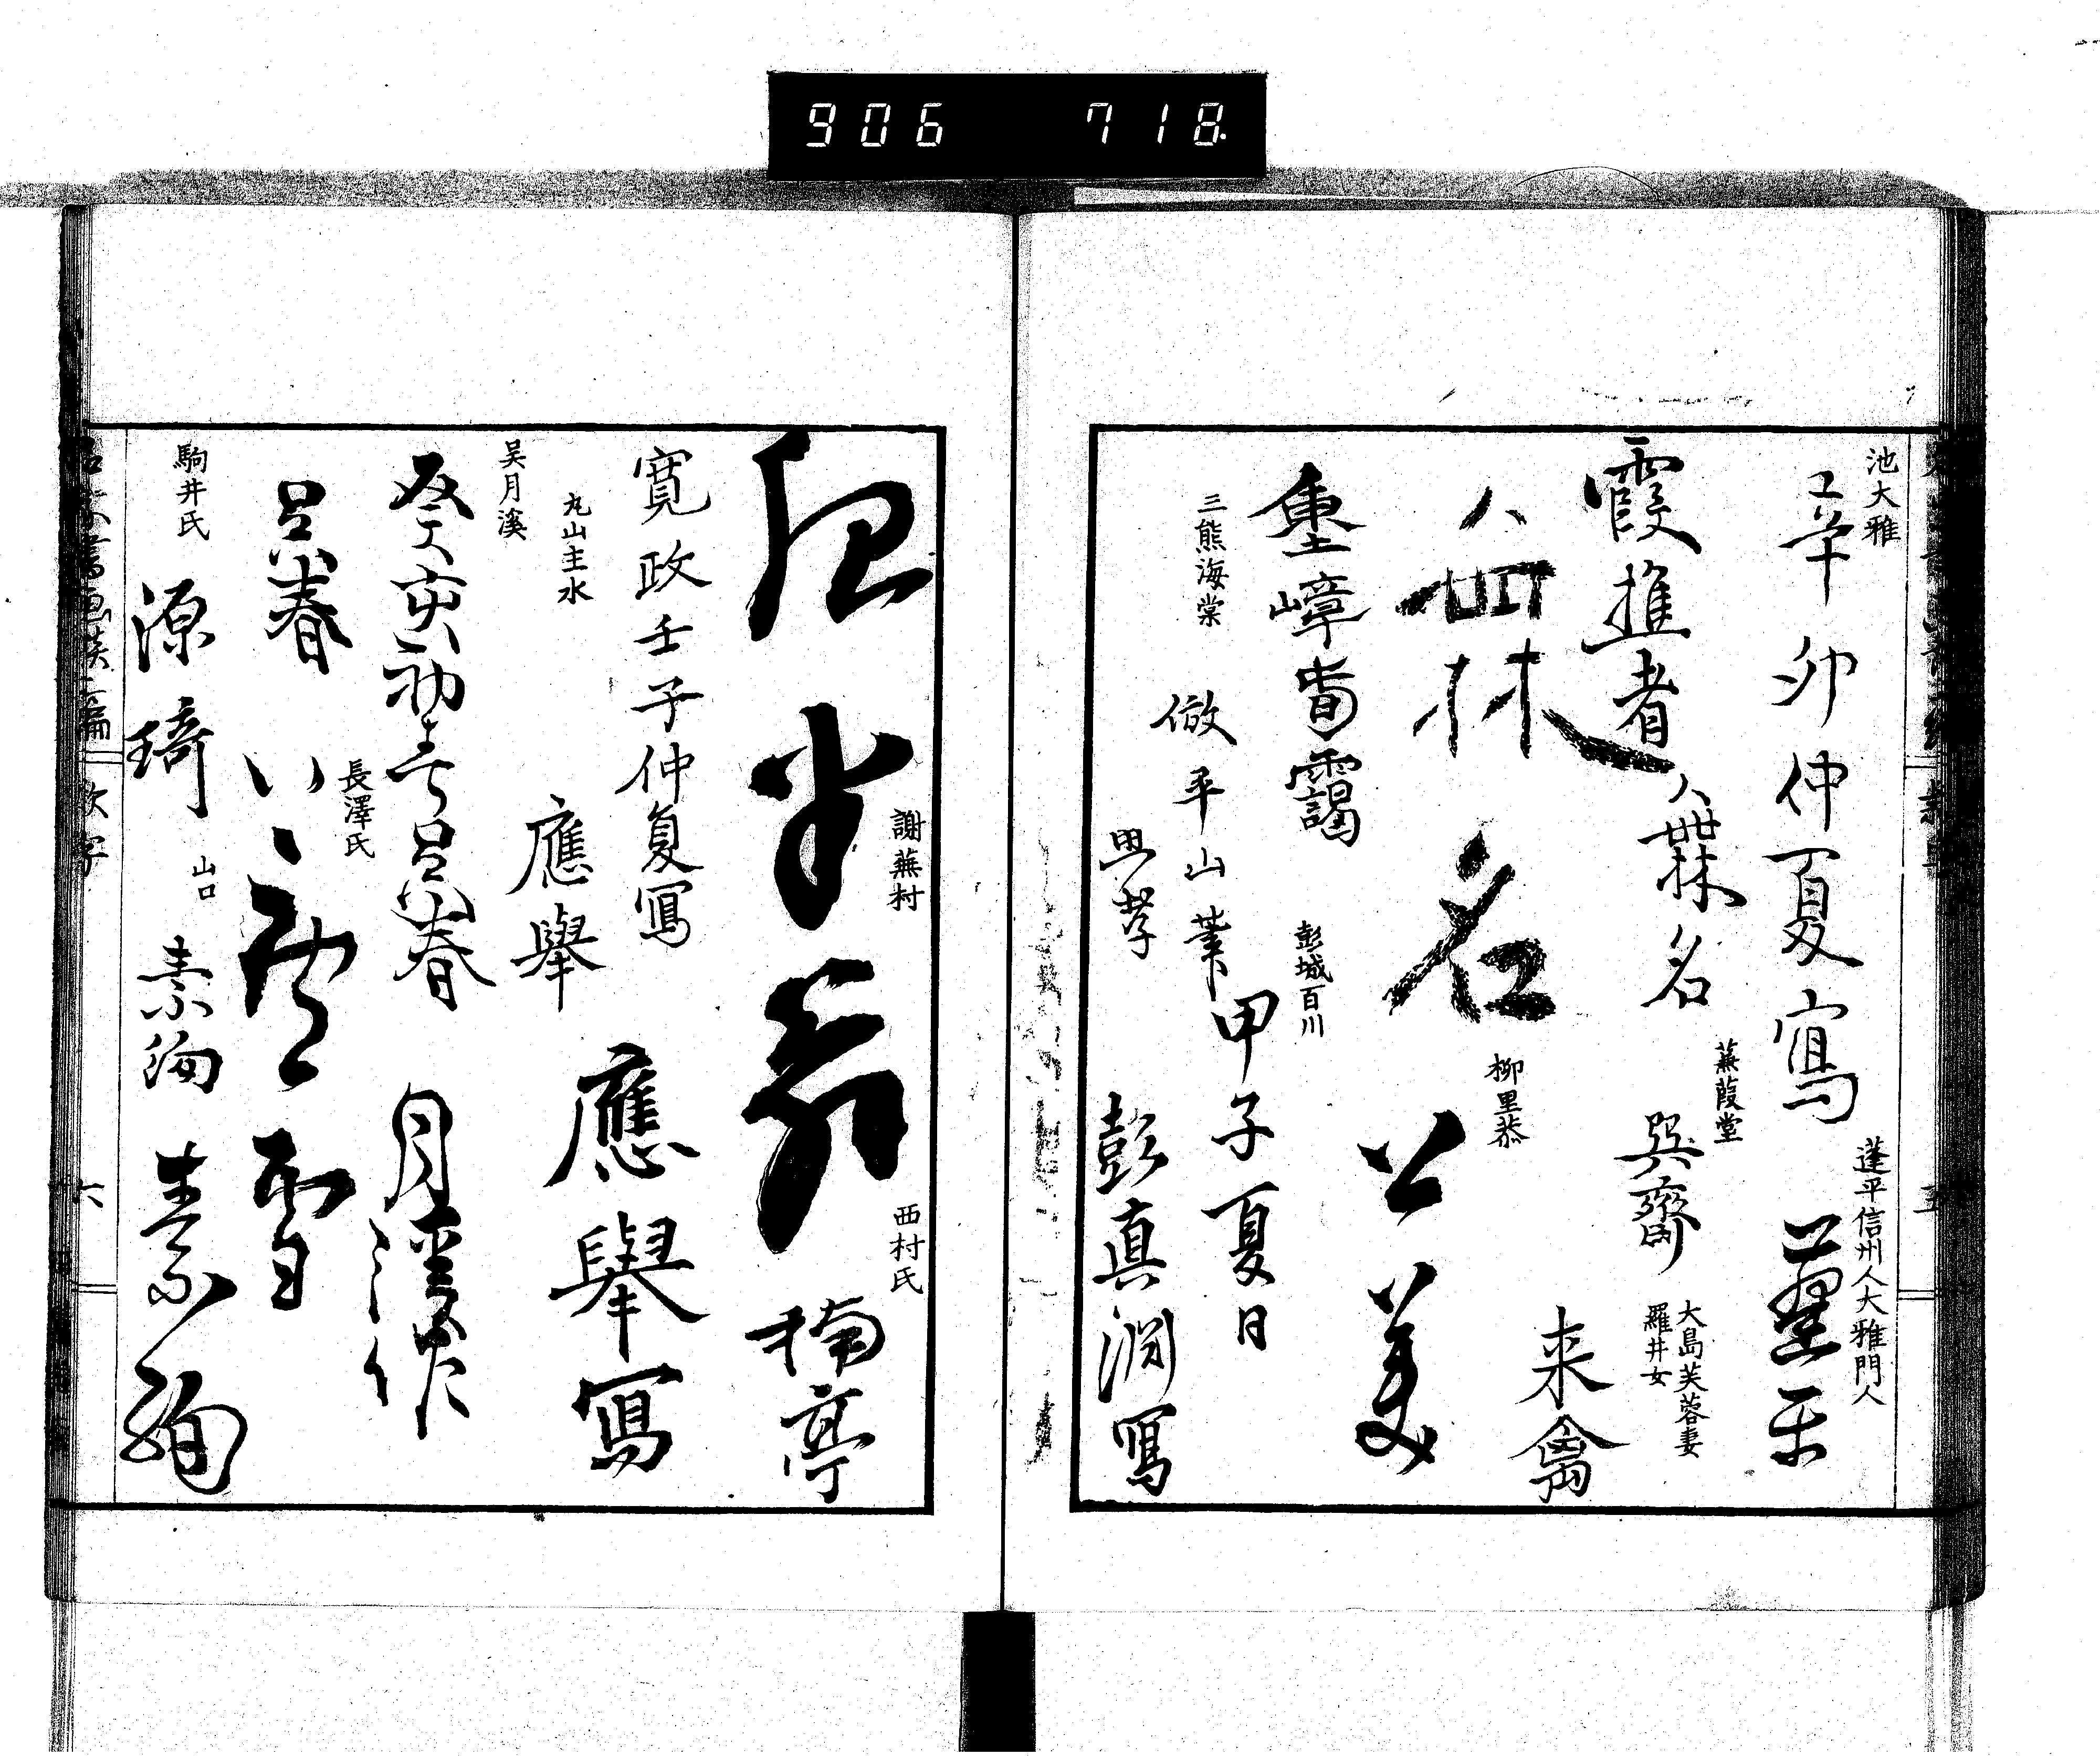 906 718
池大雅
辛卯仲夏寫
蓬平信州人大雅門人
霞樵者
無名
蒹葭堂
巽齋
大島芙蓉妻
羅井女
来禽
無名
柳里恭
公美
重嶂春靄
彭城百川
甲子夏日
彭真淵寫
三熊海棠
倣平山筆
思孝
謝蕪村
夜半翁
西村氏
楠亭
寛政壬子仲夏寫
丸山主水
應舉
應舉寫
吴月溪
癸亥初春呉春
月溪作
呉春
長澤氏
蘆雪
駒井氏
源琦
山口
素絢
素絢
款字
六